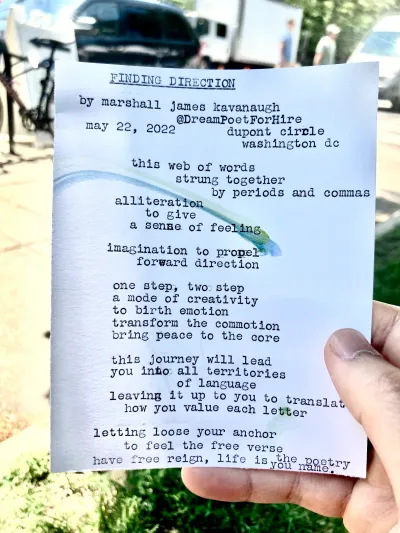 FINDING DIRECTION
by marshall james kavanaugh
@DreamPoetForHire
may 22, 2022 dupont circle
washington dc
this web of words
strung together
by periods and commas
alliteration
to give
a sense of feeling
imagination to propel
forward direction
one step, two step
a mode of creativity
to birth emotion
transform the commotion
bring peace to the core
this journey will lead
you into all territories
of language
leaving it up to you to translat
how you value each letter
letting loose your anchor
to feel the free verse
have free reign, life is the poetry
you name.